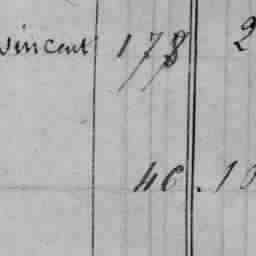 vincent 178 2
46.10